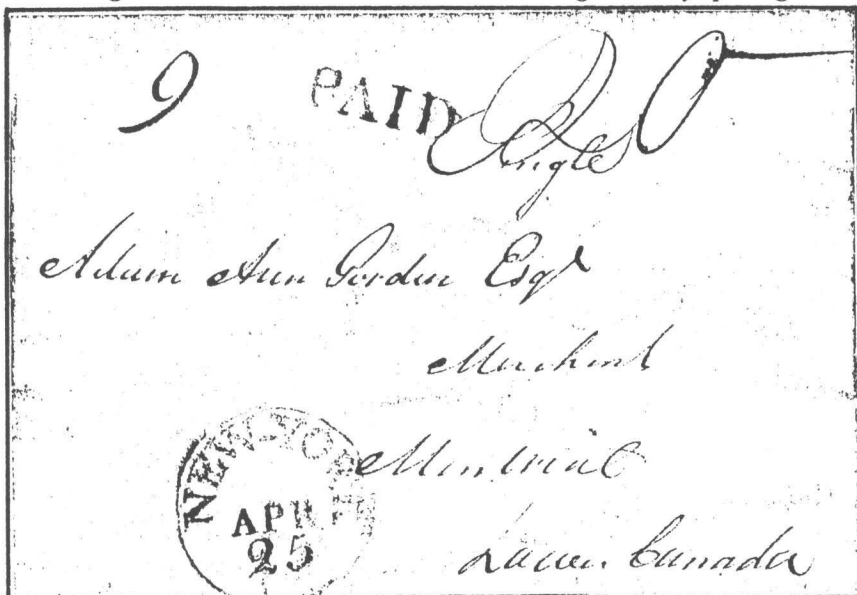 9 PAID
Single
Adam Ann Gordon Esqr
Merchant
Montreal
Lower Canada
NEW-YORK
APR
25